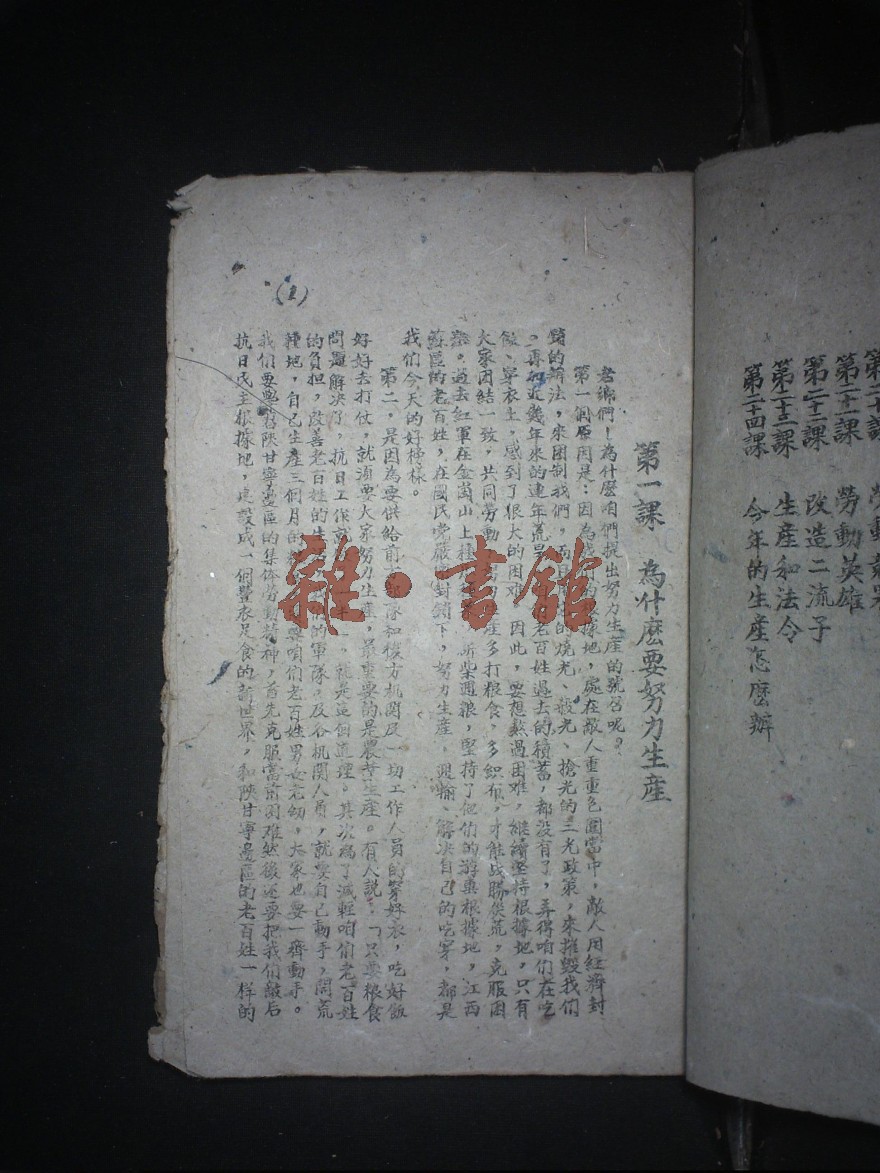 第二十一課 勞動英雄
第二十二課 改造二流子
第二十三課 生產和法令
第二十四課 今年的生產怎麽辦
第一課 為什麽要努力生産
老鄉們！為什麽咱們提出努力生産的號召呢？
第一個原因是：因為我們的根據地，處在敵人重重包圍當中，敵人用經濟封
鎖的辦法，來困制我們，而且用他的燒光、殺光、搶光的三光政策，來摧毀我們
。再加近幾年來的連年荒旱，老百姓過去的積蓄，都沒有了，弄得咱们在吃
飯、穿衣上，感到了很大的困难，因此，要想熬過困难，继續坚持根據地，只有
大家团結一致，共同勞動，努力生産多打粮食，多织布，才能战勝災荒，克服困
难。過去紅軍在金崗山上種 斫柴週粮，堅持了他们的游擊根據地，江西
蘇區的老百姓，在國民党嚴 封鎖下，努力生産， 輸、解決自己的吃穿，都是
我们今天的好榜樣。
第二，是因為要供給前方 隊和後方机関及一切工作人員的穿好衣，吃好飯
好好去打仗，就須要大家努力生產，最重要的是農業生産。有人說：「只要粮食
問題解決了，抗日工作就 半」，就是這個道理。其次為了減輕咱们老百姓
的負担，改善老百姓的生 们的軍隊。及各机関人員，就要自己動手，開荒
種地，自己生產三個月的粮 要咱们老百姓男女老幼，大家也要一齊動手。
我们要學習陝甘寧邊區的集体勞動精神，首先克服當前困难然後还要把我们敵后
抗日民主根據地，建設成一個豐衣足食的新世界，和陝甘寧邊區的老百姓一样的
(1)
雜·書館